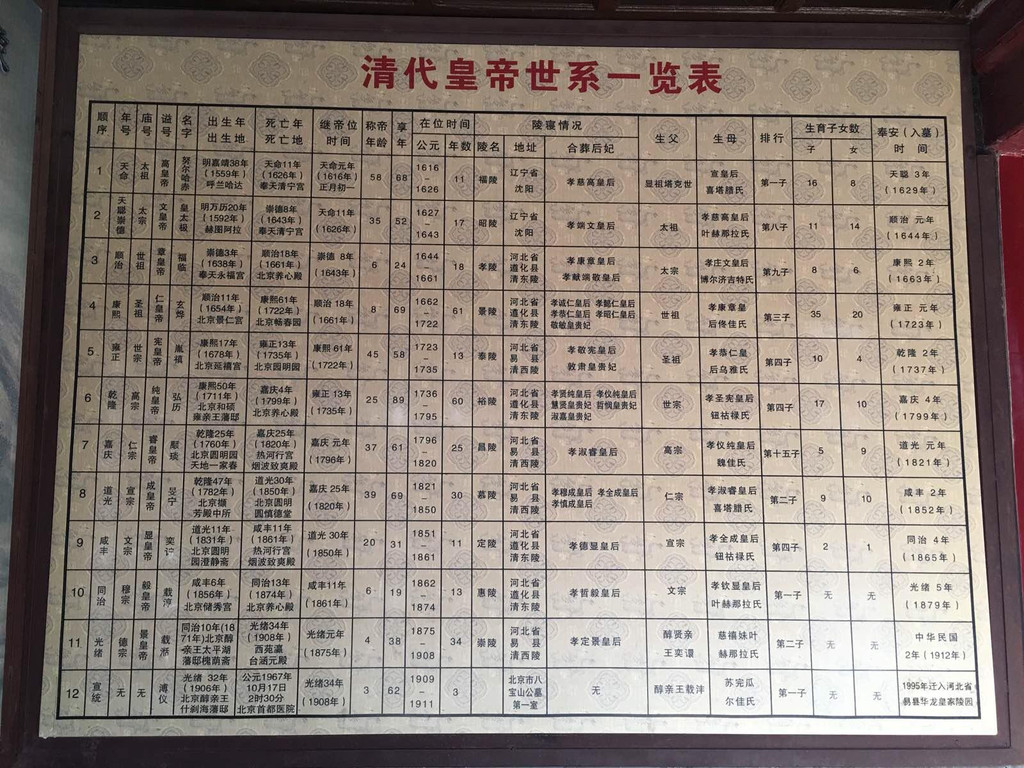 清代皇帝世系一览表
顺序 年号 庙号 谥号 名字 出生年 出生地 死亡年 死亡地 继帝位时间 称帝年龄 享年 在位时间 公元 年数 陵寝情况 陵名 地址 合葬后妃 生父 生母 排行 生育子女数 子 女 奉安（入墓）时间
1 天命 太祖 高皇帝 努尔哈赤 明嘉靖38年（1559年）呼兰哈达 天命11年（1626年）奉天清宁宫 天命元年（1616年）正月初一 58 68 1616－1626 11 福陵 辽宁省沈阳 孝慈高皇后 显祖塔克世 宣皇后喜塔腊氏 第一子 16 8 天聪 3年（1629年）
2 天聪崇德 太宗 文皇帝 皇太极 明万历20年（1592年）赫图阿拉 崇德8年（1643年）奉天清宁宫 天命11年（1626年） 35 52 1627－1643 17 昭陵 辽宁省沈阳 孝端文皇后 太祖 孝慈高皇后叶赫那拉氏 第八子 11 14 顺治 元年（1644年）
3 顺治 世祖 章皇帝 福临 崇德3年（1638年）奉天永福宫 顺治18年（1661年）北京养心殿 崇德 8年（1643年） 6 24 1644－1661 18 孝陵 河北省遵化县清东陵 孝康章皇后 孝献端敬皇后 太宗 孝庄文皇后博尔济吉特氏 第九子 8 6 康熙 2年（1663年）
4 康熙 圣祖 仁皇帝 玄烨 顺治11年（1654年）北京景仁宫 康熙61年（1722年）北京畅春园 顺治 18年（1661年） 8 69 1662－1722 61 景陵 河北省遵化县清东陵 孝诚仁皇后 孝懿仁皇后 孝恭仁皇后 孝昭仁皇后 敬敏皇贵妃 世祖 孝康章皇后佟佳氏 第三子 35 20 雍正 元年（1723年）
5 雍正 世宗 宪皇帝 胤禛 康熙17年（1678年）北京延禧宫 雍正13年（1735年）北京园明园 康熙 61年（1722年） 45 58 1723－1735 13 泰陵 河北省易县清西陵 孝敬宪皇后 敦肃皇贵妃 圣祖 孝恭仁皇后乌雅氏 第四子 10 4 乾隆 2年（1737年）
6 乾隆 高宗 纯皇帝 弘历 康熙50年（1711年）北京和硕雍亲王藩邸 嘉庆4年（1799年）北京养心殿 雍正 13年（1735年） 25 89 1736－1795 60 裕陵 河北省遵化县清东陵 孝贤纯皇后 孝仪纯皇后 慧贤皇贵妃 哲悯皇贵妃 淑嘉皇贵妃 世宗 孝圣宪皇后钮祜禄氏 第四子 17 10 嘉庆 4年（1799年）
7 嘉庆 仁宗 睿皇帝 颙琰 乾隆25年（1760年）北京圆明园天地一家春 嘉庆25年（1820年）热河行宫烟波致爽殿 嘉庆 元年（1796年） 37 61 1796－1820 25 昌陵 河北省易县清西陵 孝淑睿皇后 高宗 孝仪纯皇后魏佳氏 第十五子 5 9 道光 元年（1821年）
8 道光 宣宗 成皇帝 旻宁 乾隆47年（1782年）北京撷芳殿中所 道光30年（1850年）北京圆明园慎德堂 嘉庆 25年（1820年） 39 69 1821－1850 30 慕陵 河北省易县清西陵 孝穆成皇后 孝全成皇后 孝慎成皇后 仁宗 孝淑睿皇后喜塔腊氏 第二子 9 10 咸丰 2年（1852年）
9 咸丰 文宗 显皇帝 奕詝 道光11年（1831年）北京圆明园澄静斋 咸丰11年（1861年）热河行宫烟波致爽殿 道光 30年（1850年） 20 31 1851－1861 11 定陵 河北省遵化县清东陵 孝德显皇后 宣宗 孝全成皇后钮祜禄氏 第四子 2 1 同治 4年（1865年）
10 同治 穆宗 毅皇帝 载淳 咸丰6年（1856年）北京储秀宫 同治13年（1874年）北京养心殿 咸丰11年（1861年） 6 19 1862－1874 13 惠陵 河北省遵化县清东陵 孝哲毅皇后 文宗 孝钦显皇后叶赫那拉氏 第一子 无 无 光绪 5年（1879年）
11 光绪 德宗 景皇帝 载湉 同治10年（1871年）北京醇亲王太平湖藩邸槐荫斋 光绪34年（1908年）西苑瀛台涵元殿 光绪元年（1875年） 4 38 1875－1908 34 崇陵 河北省易县清西陵 孝定景皇后 醇贤亲王奕譞 慈禧妹叶赫那拉氏 第二子 无 无 中华民国2年（1912年）
12 宣统 无 无 溥仪 光绪 32年（1906年）北京醇亲王什刹海藩邸 公元1967年10月17日2时30分北京首都医院 光绪34年（1908年） 3 62 1909－1911 3 北京市八宝山公墓第一室 无 醇亲王载沣 苏完瓜尔佳氏 第一子 无 无 1995年迁入河北省易县华龙皇家陵园